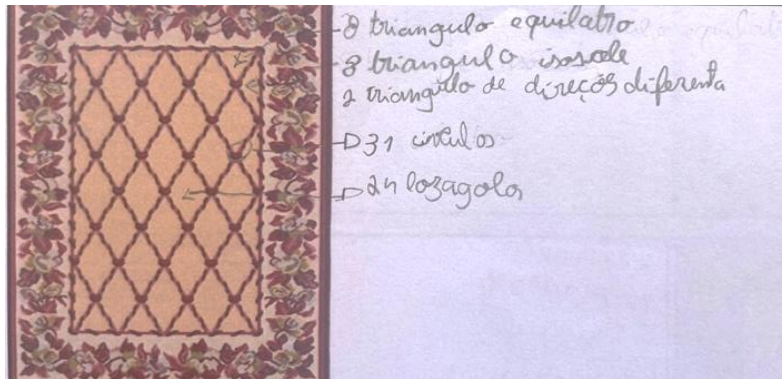 8 triangulo equilatro
8 triangulo isoscele
2 triangulo de direçõs diferenta
31 circulos
24 lozagolos